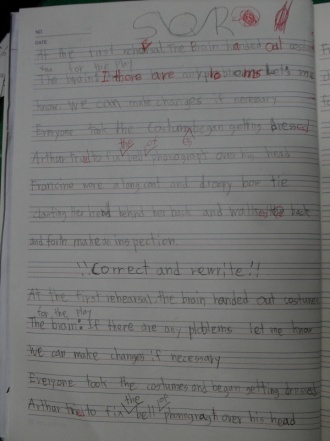 NO.
DATE
At the first rehearsal the Brain handed out
for the play
The brain: If there are any ploblems let me
know. We can make changes if necessary
Everyone took the costums began getting dressed
the of
Arthur tried to fix bell phonograph over his head
Francine wore a long coat and droopy bow tie
her hand behind her back and walked back
and forth make an inspection.
!!Correct and rewrite!!
At the first rehearsal, the brain handed out costumes
for the play
The brain: If there are any ploblems let me know
We can make changes if necessary
Everyone took the costumes and began getting dressed
the of
Arthur tries to fix bell phonograph over his head